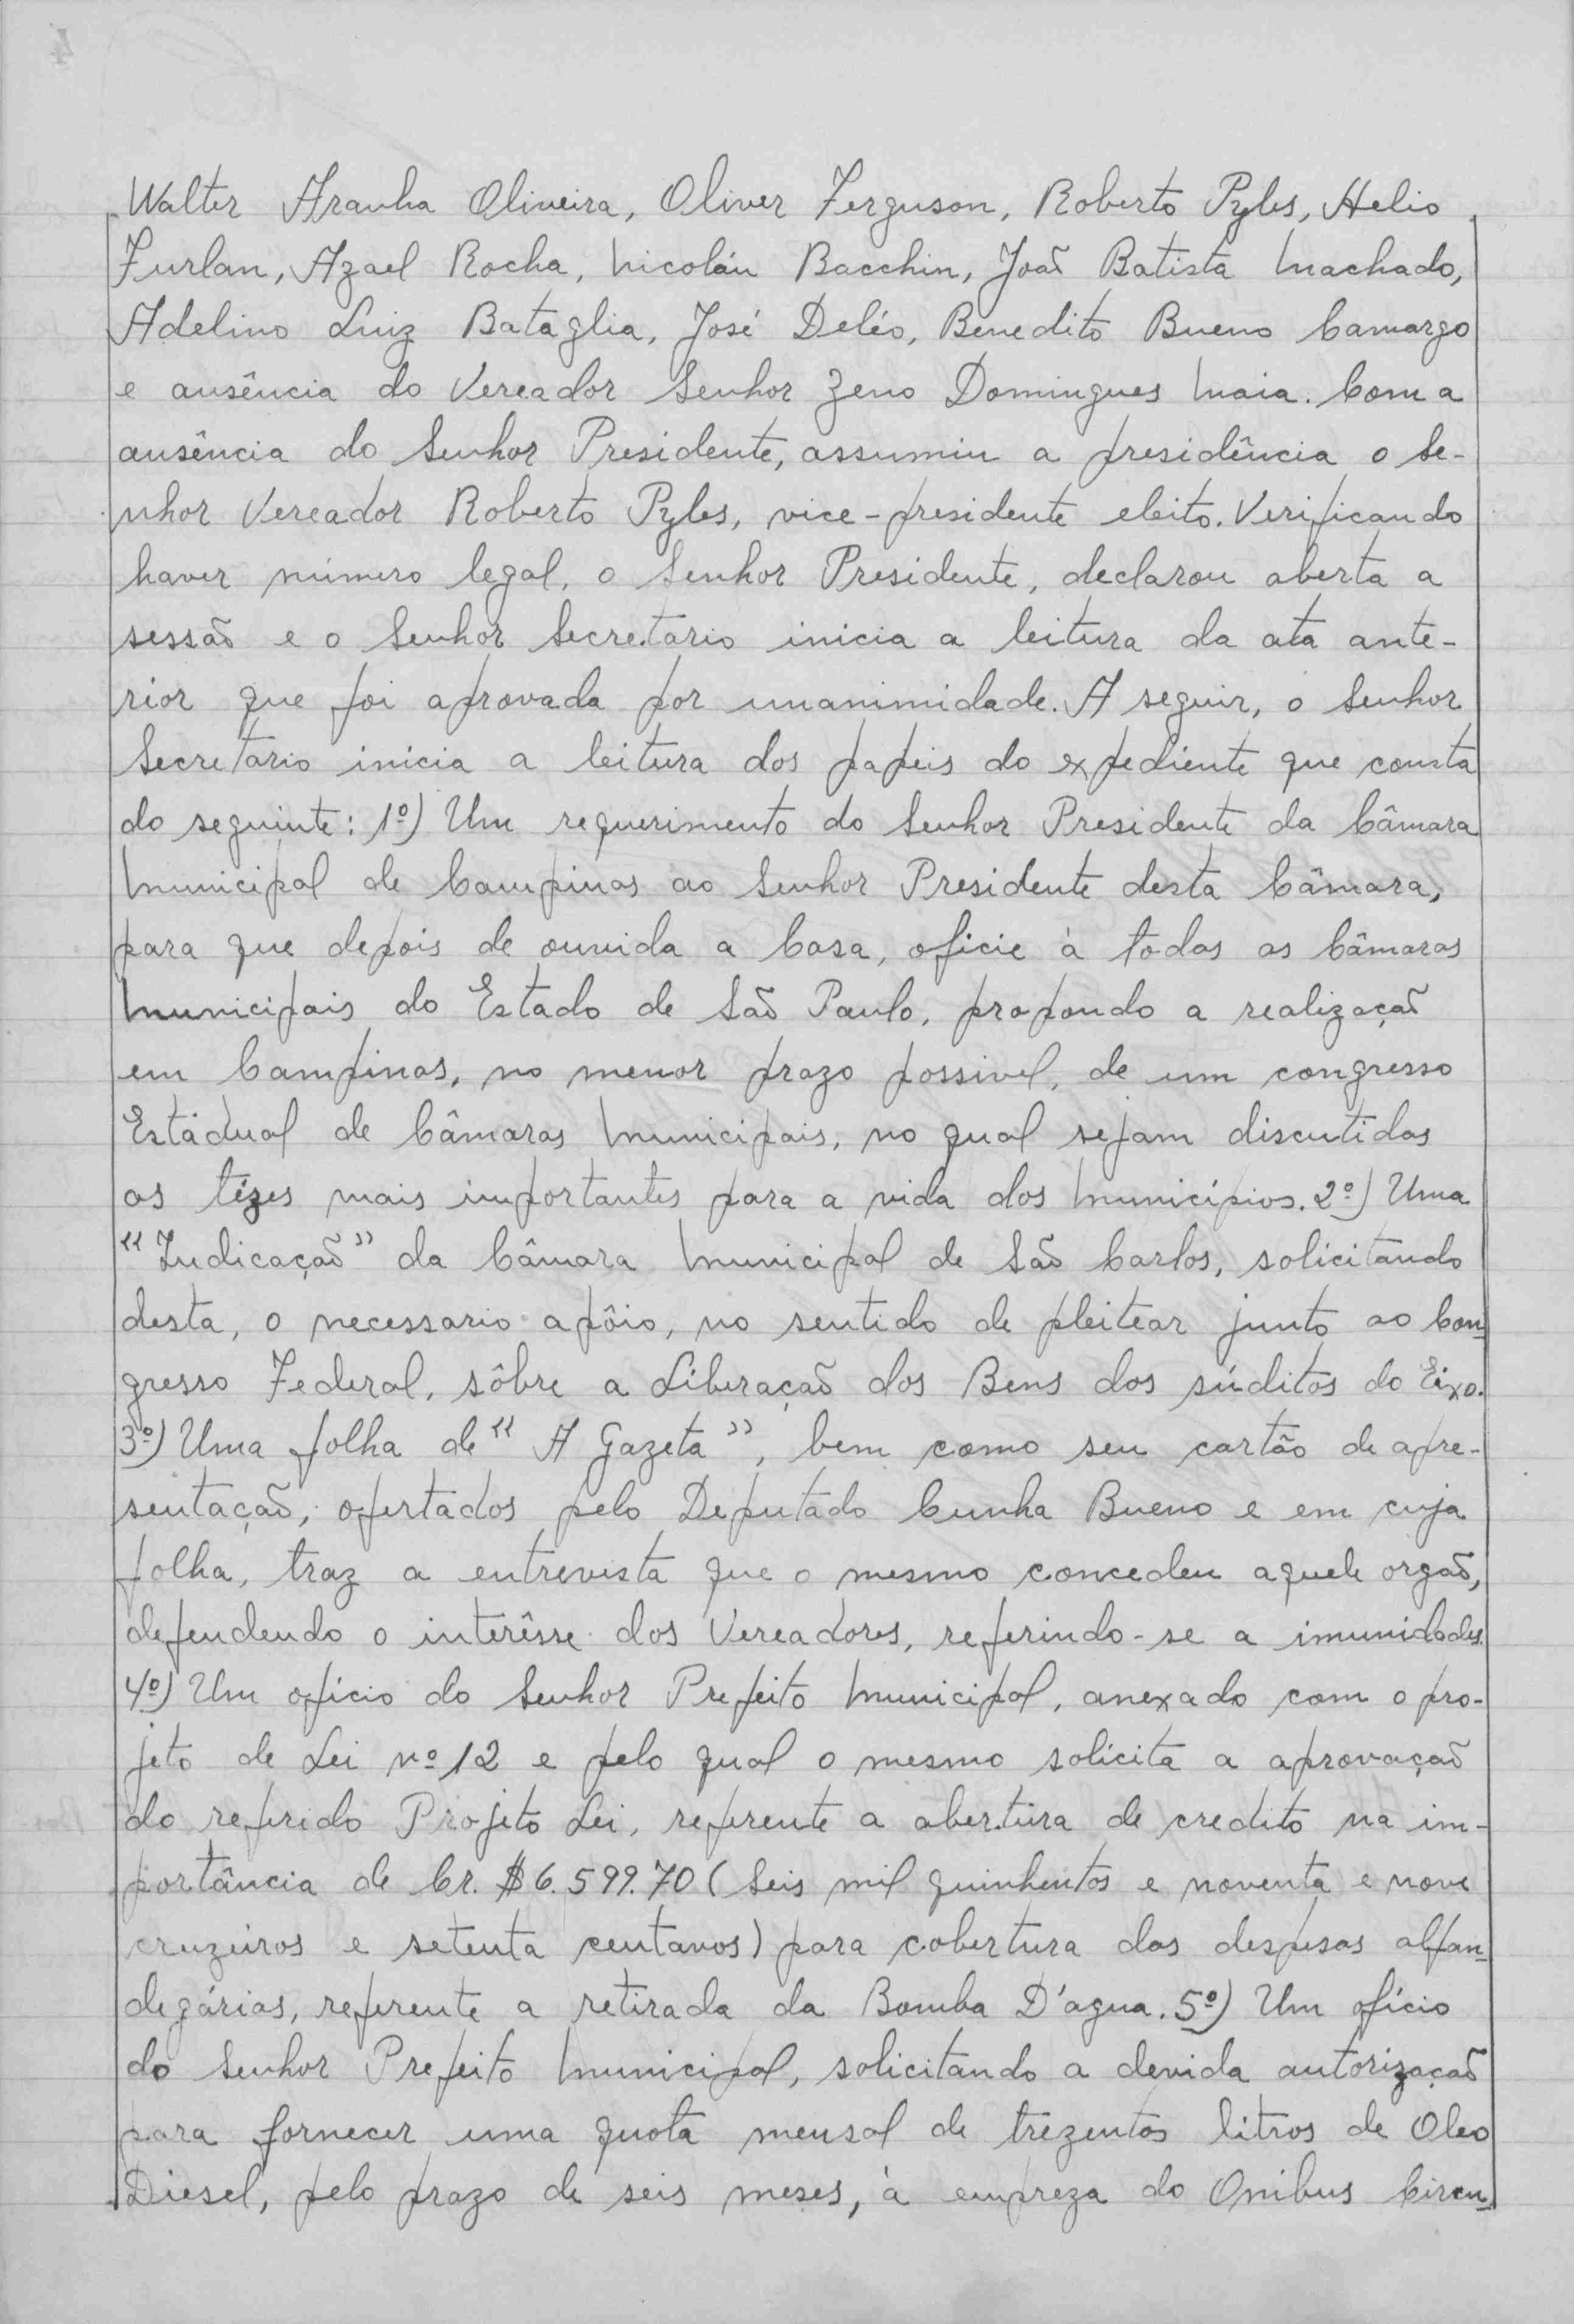 Walter Aranha Oliveira, Oliver Ferguson, Roberto Pyles, Helio
Furlan, Azael Rocha, Nicoláu Bacchin, João Batista Machado,
Adelino Luiz Bataglia, José Deléo, Benedito Bueno Camargo
e ausência do Vereador Senhor Zeno Domingues Maia. Com a
ausência do Senhor Presidente, assumiu a presidência o Se-
nhor Vereador Roberto Pyles, vice-presidente eleito. Verificando
haver número legal, o Senhor Presidente, declarou aberta a
sessão e o Senhor Secretario inicia a leitura da ata ante-
rior que foi aprovada por unanimidade. A seguir, o Senhor
Secretario inicia a leitura dos papeis do expediente que consta
do seguinte: 1º) Um requerimento do Senhor Presidente da Câmara
Municipal de Campinas ao Senhor Presidente desta Câmara,
para que depois de ouvida a Casa, oficie à todas as Câmaras
Municipais do Estado de São Paulo, propondo a realização
em Campinas, no menor prazo possivel, de um congresso
Estadual de Câmaras Municipais, no qual sejam discutidas
as tézes mais importantes para a vida dos Municípios. 2º) Uma
"Indicação" da Câmara Municipal de São Carlos, solicitando
desta, o necessario apôio, no sentido de pleitear junto ao Con-
gresso Federal, sôbre a Liberação dos Bens dos súditos do Eixo.
3º) Uma folha de "A Gazeta", bem como seu cartão de apre-
sentação, ofertados pelo Deputado Cunha Bueno e em cuja
folha, traz a entrevista que o mesmo concedeu aquele orgão,
defendendo o interêsse dos Vereadores, referindo-se a imunidades.
4º) Um ofício do Senhor Prefeito Municipal, anexado com o pro-
jeto de Lei nº 12 e pelo qual o mesmo solicita a aprovação
do referido Projeto Lei, referente a abertura de credito na im-
portância de Cr. $6.599.70 (Seis mil quinhentos e noventa e nove
cruzeiros e setenta centavos) para cobertura das despesas alfan-
degárias, referente a retirada da Bomba D'agua. 5º) Um ofício
do Senhor Prefeito Municipal, solicitando a devida autorização
para fornecer uma quota mensal de trezentos litros de Oleo
Diesel, pelo prazo de seis meses, à empreza do Onibus Circu-